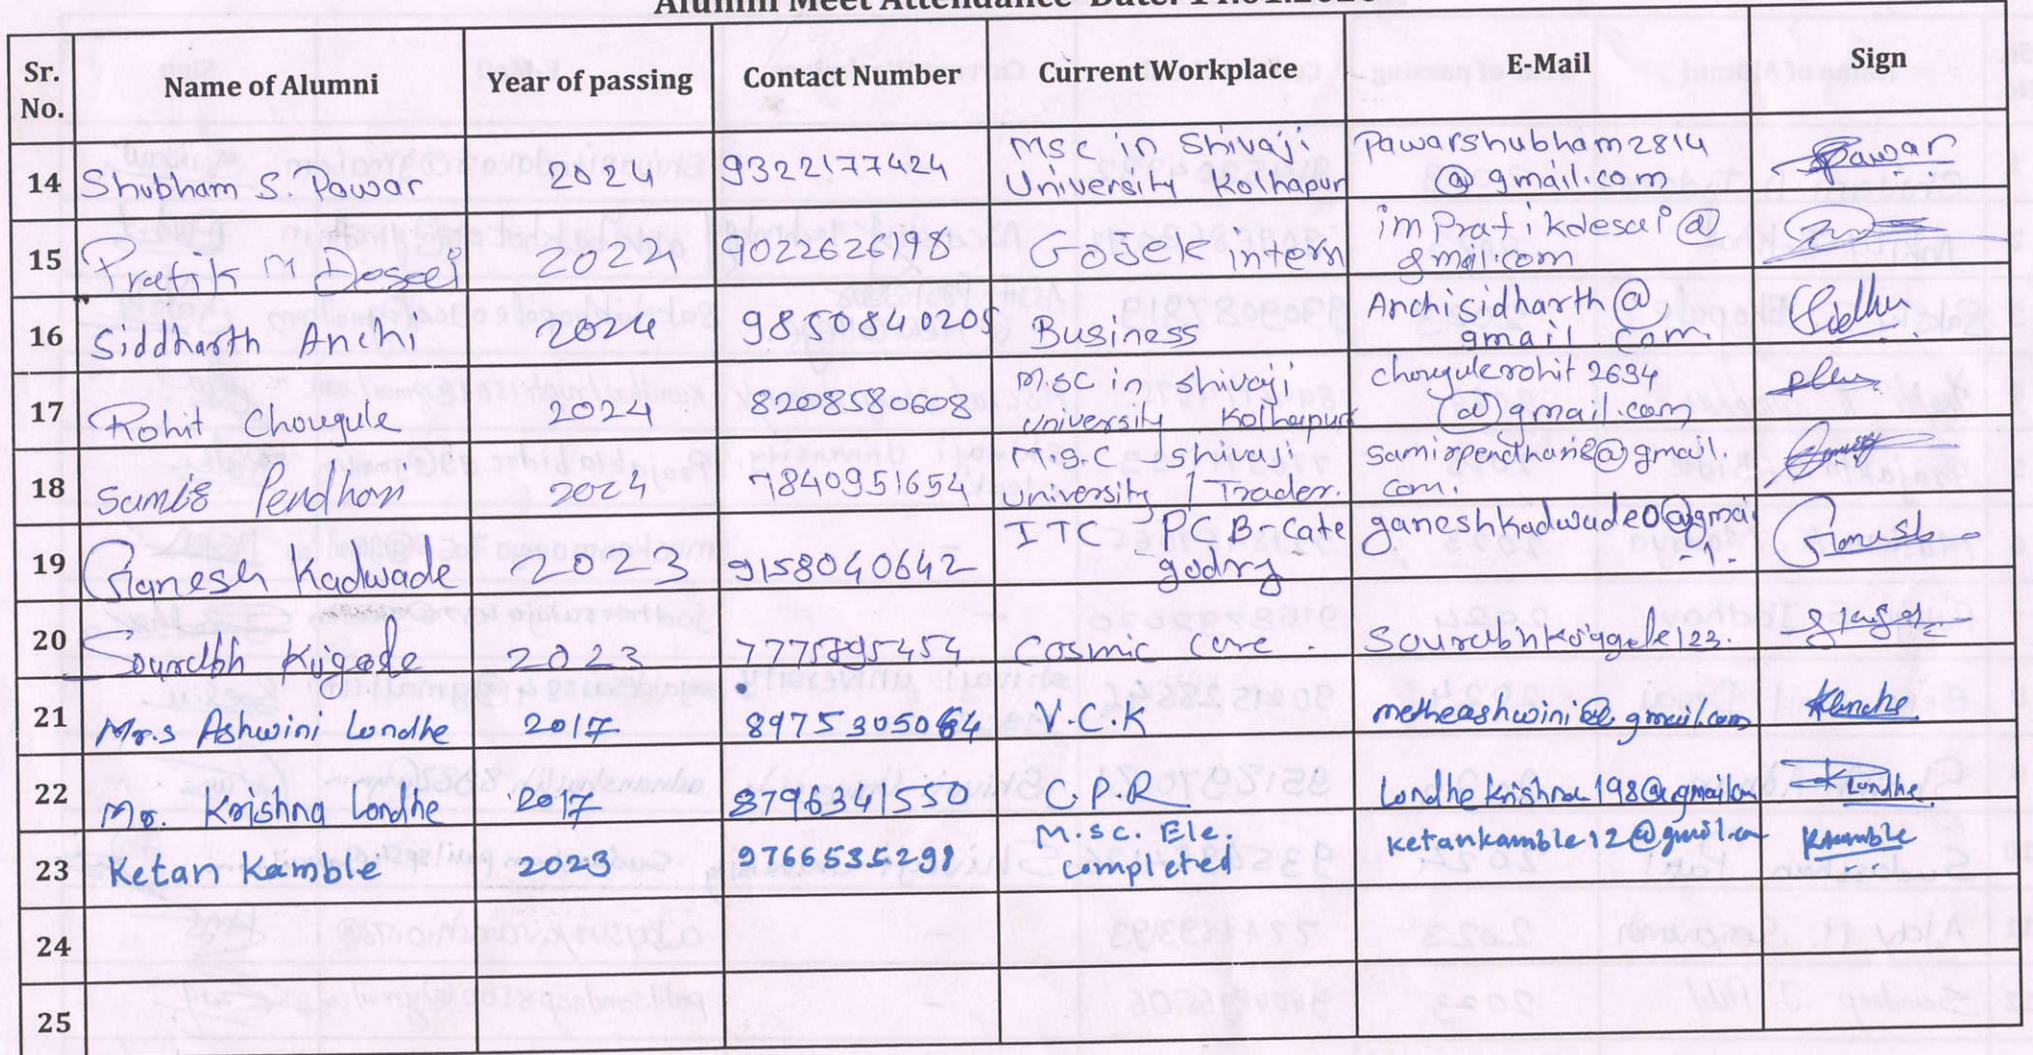 Alumni Meet Attendance Date:
Sr. No. Name of Alumni Year of passing Contact Number Current Workplace E-Mail Sign
14 Shubham S. Pawar 2024 9322177424 MSC in Shivaji University Kolhapur Pawarshubham2814@gmail.com Pawar
15 Pratik M Desai 2024 9022626198 Gosek intern imPratikdesai@gmail.com
16 Siddharth Anchi 2024 9850840205 Business Anchisidharth@gmail com.
17 Rohit Chougule 2024 8208180608 M.sc in shivaji University Kolhapur chougulerohit2634@gmail.com
18 Samir Pendhari 2024 7840951654 M.S.C shivaji University / Trader. samirpendhari@gmail.com.
19 Ganesh Kadwade 2023 9158040642 ITC - PCB-Cate godrg ganeshkadwade0@gmai Ganesh
20 Sourabh 2023 7775895454 Cosmic Care.
21 Mrs Ashwini Londhe 2017 8975305064 V.C.K metheashwini@gmail.com
22 Mr. Krishna Londhe 2017 8796341550 C.P.R Londhekrishna198@gmail.com KLondhe
23 Ketan Kamble 2023 9766535298 M.sc. Ele. completed ketankamble12@gmail.com Kamble
24
25